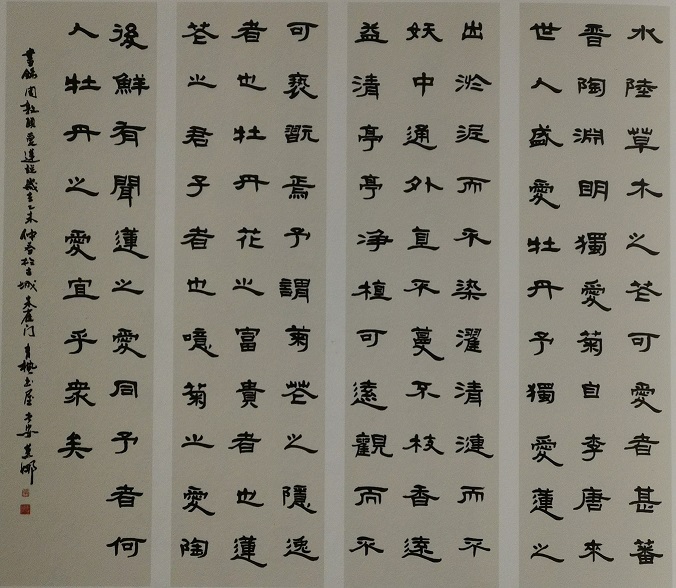 水陸草木之花可愛者甚蕃
晉陶淵明獨愛菊自李唐來
世人盛愛牡丹予獨愛蓮之
出淤泥而不染濯清漣而不
妖中通外直不蔓不枝香遠
益清亭亭淨植可遠觀而不
可褻翫焉予謂菊花之隱逸
者也牡丹花之富貴者也蓮
花之君子者也噫菊之愛陶
後鮮有聞蓮之愛同予者何
人牡丹之愛宜乎衆矣
書錄周敦頤愛蓮說歲在乙未仲春於古城朱雀门